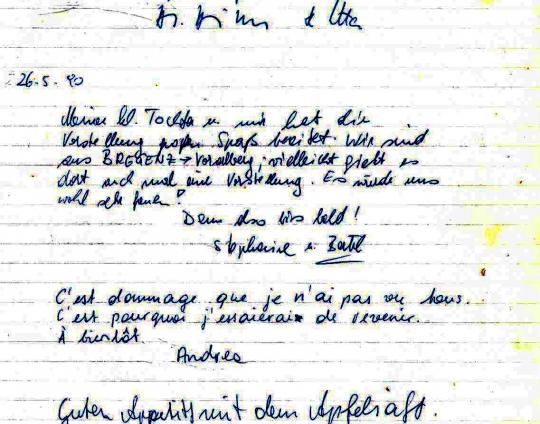 & Uta
26.5.90
Meiner kl. Tochter u. mir hat die
Vorstellung großen Spaß bereitet. Wir sind
aus BREGENZ → Vorarlberg, vielleicht giebt es
dort auch mal eine Vorstellung. Es würde uns
wohl sehr freuen!
Denn also bis bald!
Stephanie u.
C'est dommage que je n'ai pas vu tous.
C'est pourquoi j'essaierais de revenir.
À bientôt.
Andrea
Guten Appetit mit dem Apfelsaft.